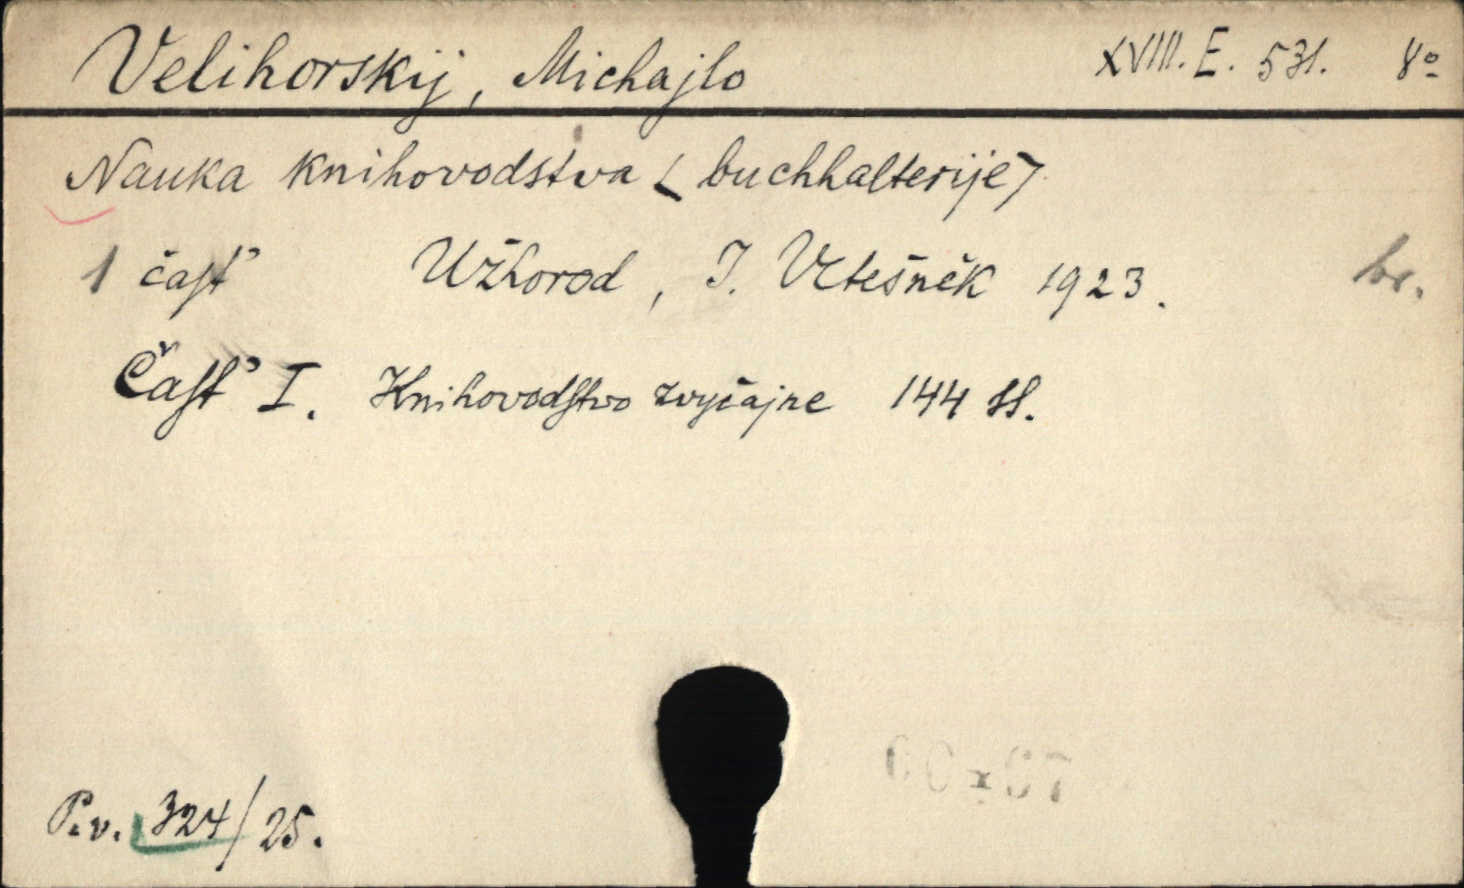 Velihorskij, Michajlo XVIII. E. 531. 8º
Nauka knihovodstva (buchhalterije)
1 čast' Užhorod, J. Vetešnêk 1923. br.
Čast' I. Knihovodstvo zvyčajne 144 ss.
P.v. 324/25.